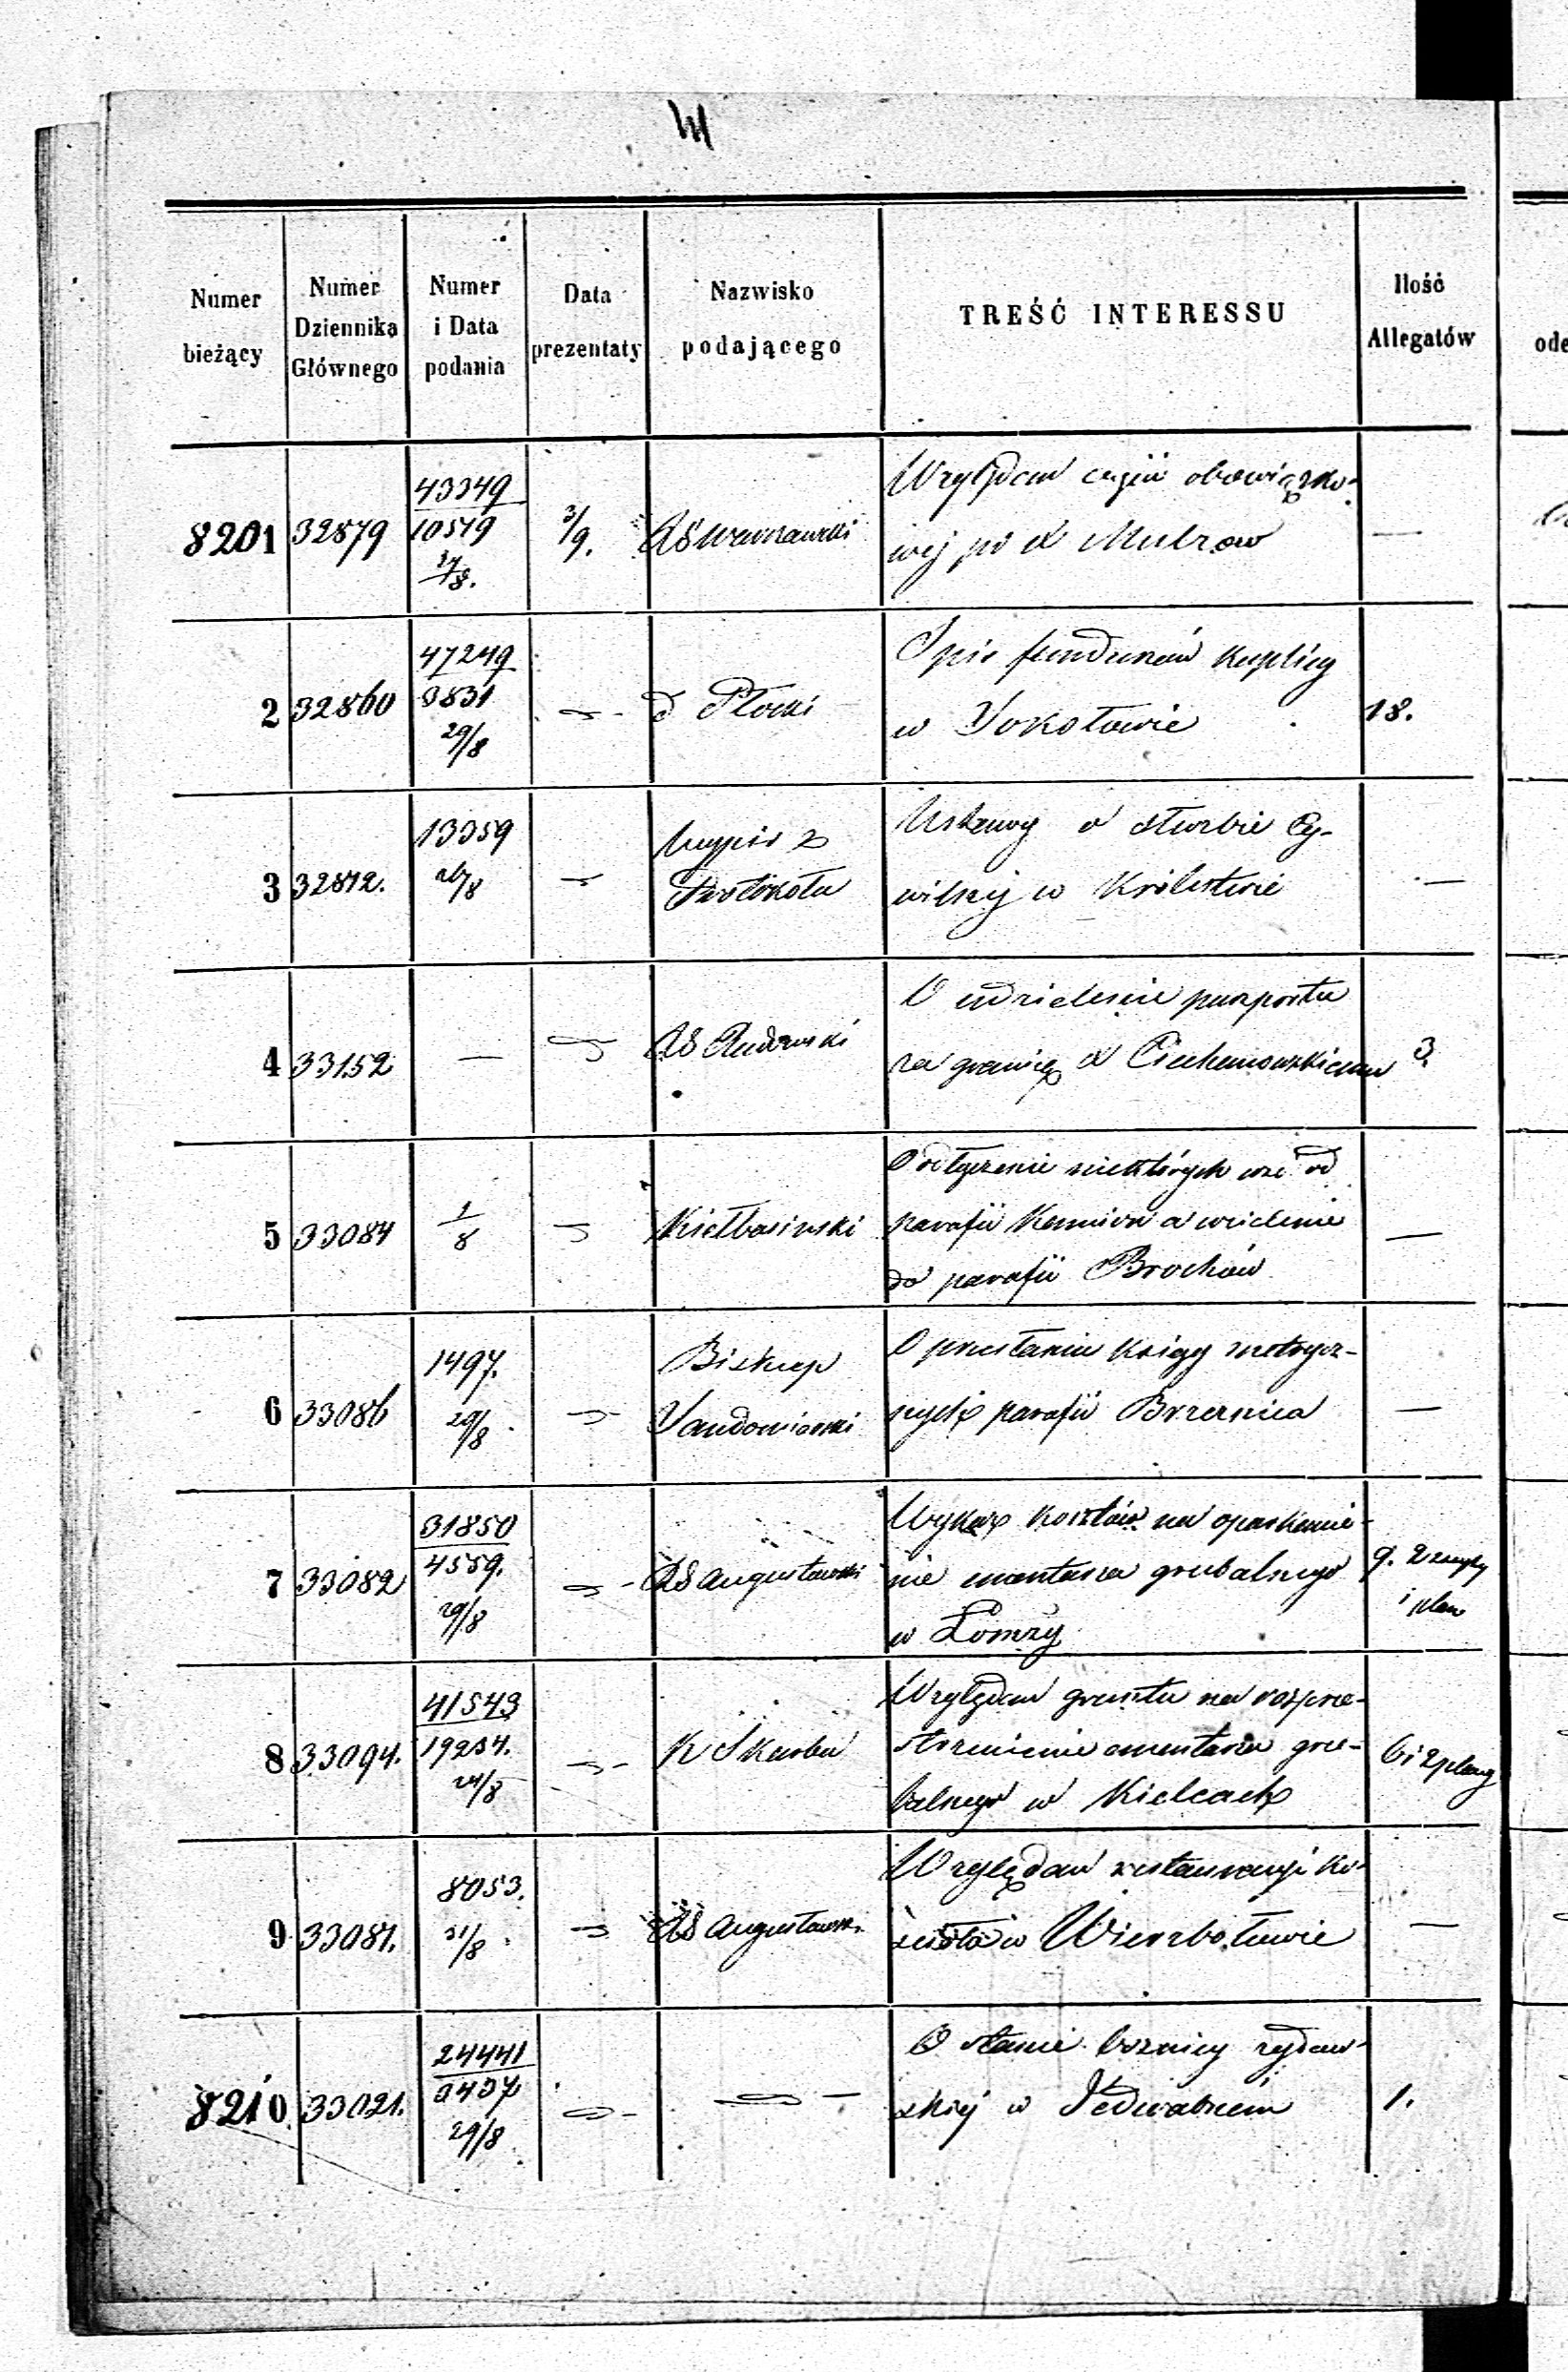 Numer bieżący
Numer Dziennika Głównego
Numer i Data podania
Data prezentaty
Nazwisko podającego
TREŚĆ INTERESSU
Ilość Allegatów
8201 32879
43349
10519
3/9.
Względem
wej po X
—
2 32860
47249
3831
29/8
d Płocki
Spis funduszów kaplicy
w Sokołowie
18.
3 32812.
13359
26/8
Wypis z
Protokołu
Ustawy o służbie Cy-
wilnej w Królestwie
—
4 33152
—
O udzielenie paszportu
za granicę X Ciechanowskiemu
3.
5 33084
1/8
Kiełbasiński
Odłączenie niektórych wsi od
parafii a wcielenie
do parafii Brochów
—
6 33086
1497.
29/8
Biskup
Sandomierski
O przesłaniu księg metrycz-
nych parafii Brzeznica
—
7 33082
31850
4559.
29/8
RG Augustowski
Wykaz kosztów na oparkanie-
nie cmentarza grzebalnego
w Łomzy
9. 2
i plan
8 33094.
41543
19254.
24/8
K Skarbu
Względem gruntu na rozprze-
strzenienie cmentarza grze-
balnego w Kielcach
6 i 2 plany
9 33081.
8053.
31/8
RG Augustowsk.
Względem restauracyi ko-
ścioła w Wierzbołowie
—
8210 33021.
24441
3437
29/8
O stanie boznicy zydow-
skiej w Jedwabnem
1.